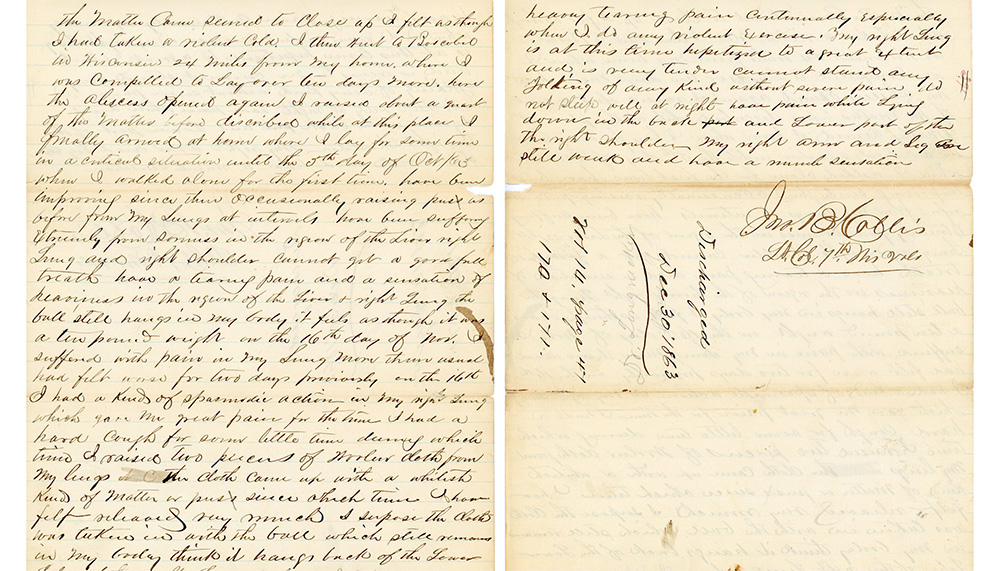 the Matter Came seemed to Close up I felt as though
I had taken a violent Cold. I then went to Boscobel
in Wisconsin 24 miles from my home, where I
was Compelled to Lay over ten days more, here
the Abscess opened again I raised about a
of the Matter before discribed while at this place I
finally arived at home where I lay for some time
in a critical situation until the 5th day of Oct/63
when I walked alone for the first time. have been
improving since then Occasionally raising puss as
before from my Lungs at intervals have been suffering
Extremly from soreness in the region of the Liver right
Lung and right shoulder cannot get a good full
breath have a tearing pain and a sensation of
heaviness in the region of the Liver & right Lung the
ball still hangs in my body it feels as though it was
a ten pound weight on the 16th day of Nov. I
suffered with pain in my Lung more than usual
had felt worse for two days previously on the 16th
I had a kind of spasmodic action in my right Lung
which gave me great pain for the time I had a
hard Cough for some little time during which
time I raised two pieces of Woolen cloth from
My lungs the cloth came up with a whitish
kind of Matter or puss since which time I have
felt releaved very much I supose the Cloth
was taken in with the ball which still remains
in my body think it hangs back of the Lower
heavy tearing pain Continually Especially
when I do any violent Exercise. my right Lung
is at this time hepetized to a great extent
and is very tender cannot stand any
Jolting of any kind without severe pain, do
not sleep well at night have pain while Lying
down in the back and Lower part of the
the right shoulder My right arm and Leg
still weak and have a numb sensation
Jno. B. Callis
Lt Col, 7th Wis Vols
Discharged
Dec 30 1863
Vol 14, page 401
170 & 171.